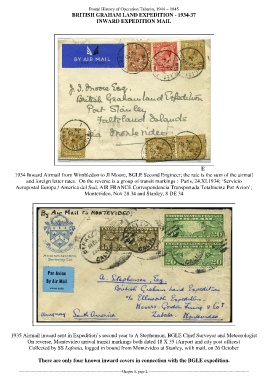 Postal History of Operation Tabarin, 1944 – 1945
BRITISH GRAHAM LAND EXPEDITION - 1934-37
INWARD EXPEDITION MAIL
BY AIR MAIL
J.I. Moore Esq.
British Graham Land Expedition
Port Stanley
Falkland Islands
via Montevideo
E
1934 Inward Airmail from Wimbledon to JI Moore, BGLE Second Engineer; the rate is the sum of the airmail
and foreign letter rates. On the reverse is a group of transit markings : Paris, 24.XI.1934; 'Servicio
Aeropostal Europa / America del Sud, AIR FRANCE Correspondencia Transportada Totalmente Por Avion';
Montevideo, Nov 28 34 and Stanley, 8 DE 34
By Air Mail to MONTEVIDEO
Par Avion
By Air Mail
A. Stephenson, Esq.
British Graham Land Expedition
Ellsworth Expedition
South America
Montevideo
1935 Airmail inward sent in Expedition's second year to A Stephenson, BGLE Chief Surveyor and Meteorologist
On reverse, Montevideo arrival transit markings both dated 18 X 35 (Airport and city post offices)
Collected by SS Lafonia, logged in board from Montevideo at Stanley, with mail, on 26 October
There are only four known inward covers in connection with the BGLE expedition.